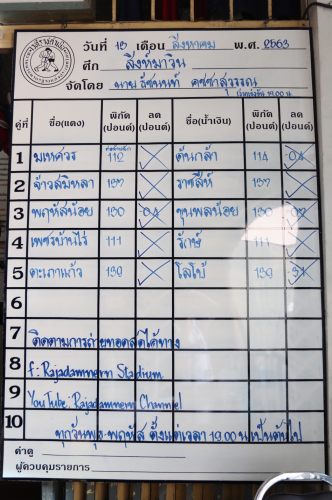 วันที่ 13 เดือน สิงหาคม พ.ศ. 2563
ศึก สิงห์มาวิน
จัดโดย นาย ธัชนนท์
คู่ที่ ชื่อ(แดง) พิกัด (ปอนด์) ลด (ปอนด์) ชื่อ(น้ำเงิน) พิกัด (ปอนด์) ลด (ปอนด์)
1 มเหศวร 112 ต้นกล้า 114
2 จ้าวสมิหลา 137 ราชสีห์ 137
3 พฤหัสน้อย 130 ขุนพลน้อย 130
4 เพชรบ้านไร่ 111 รักษ์ 111
5 ตะเภาแก้ว 139 โลโบ้ 139
6
7 ติดตามการถ่ายทอดสดได้ทาง
8 f: Rajadamnern Stadium
9 YouTube: Rajadamnern Channel
10 ทุกวันพุธ-พฤหัส ตั้งแต่เวลา 19.00 น เป็นต้นไป
ค่าดู
ผู้ควบคุมรายการ